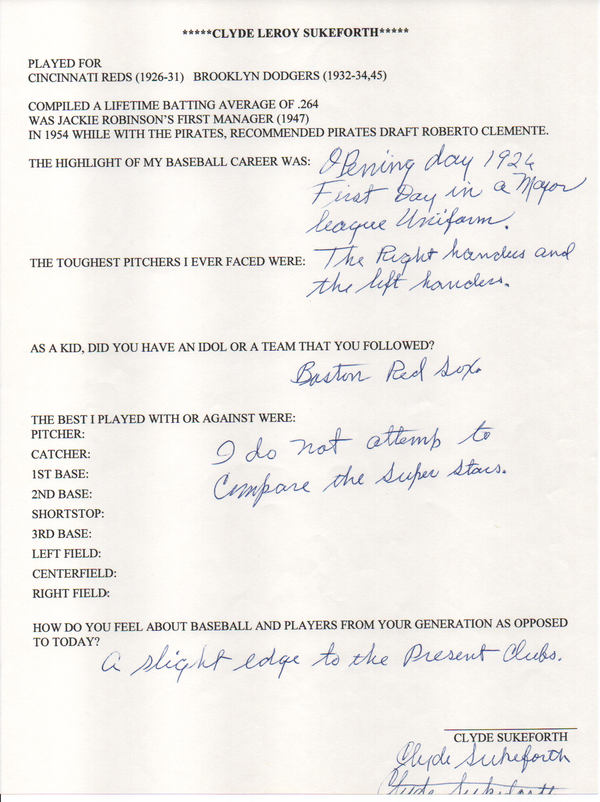 *****CLYDE LEROY SUKEFORTH*****
PLAYED FOR
CINCINNATI REDS (1926-31) BROOKLYN DODGERS (1932-34,45)
COMPILED A LIFETIME BATTING AVERAGE OF .264
WAS JACKIE ROBINSON'S FIRST MANAGER (1947)
IN 1954 WHILE WITH THE PIRATES, RECOMMENDED PIRATES DRAFT ROBERTO CLEMENTE.
THE HIGHLIGHT OF MY BASEBALL CAREER WAS: Opening day 1926
First Day in a Major
league Uniform.
THE TOUGHEST PITCHERS I EVER FACED WERE: The Right handers and
the left handers.
AS A KID, DID YOU HAVE AN IDOL OR A TEAM THAT YOU FOLLOWED?
Boston Red Sox.
THE BEST I PLAYED WITH OR AGAINST WERE:
PITCHER:
CATCHER: I do not attemp to
1ST BASE:
2ND BASE: Compare the Super Stars.
SHORTSTOP:
3RD BASE:
LEFT FIELD:
CENTERFIELD:
RIGHT FIELD:
HOW DO YOU FEEL ABOUT BASEBALL AND PLAYERS FROM YOUR GENERATION AS OPPOSED
TO TODAY?
A slight edge to the Present Clubs.
CLYDE SUKEFORTH
Clyde Sukeforth
Clyde Sukeforth